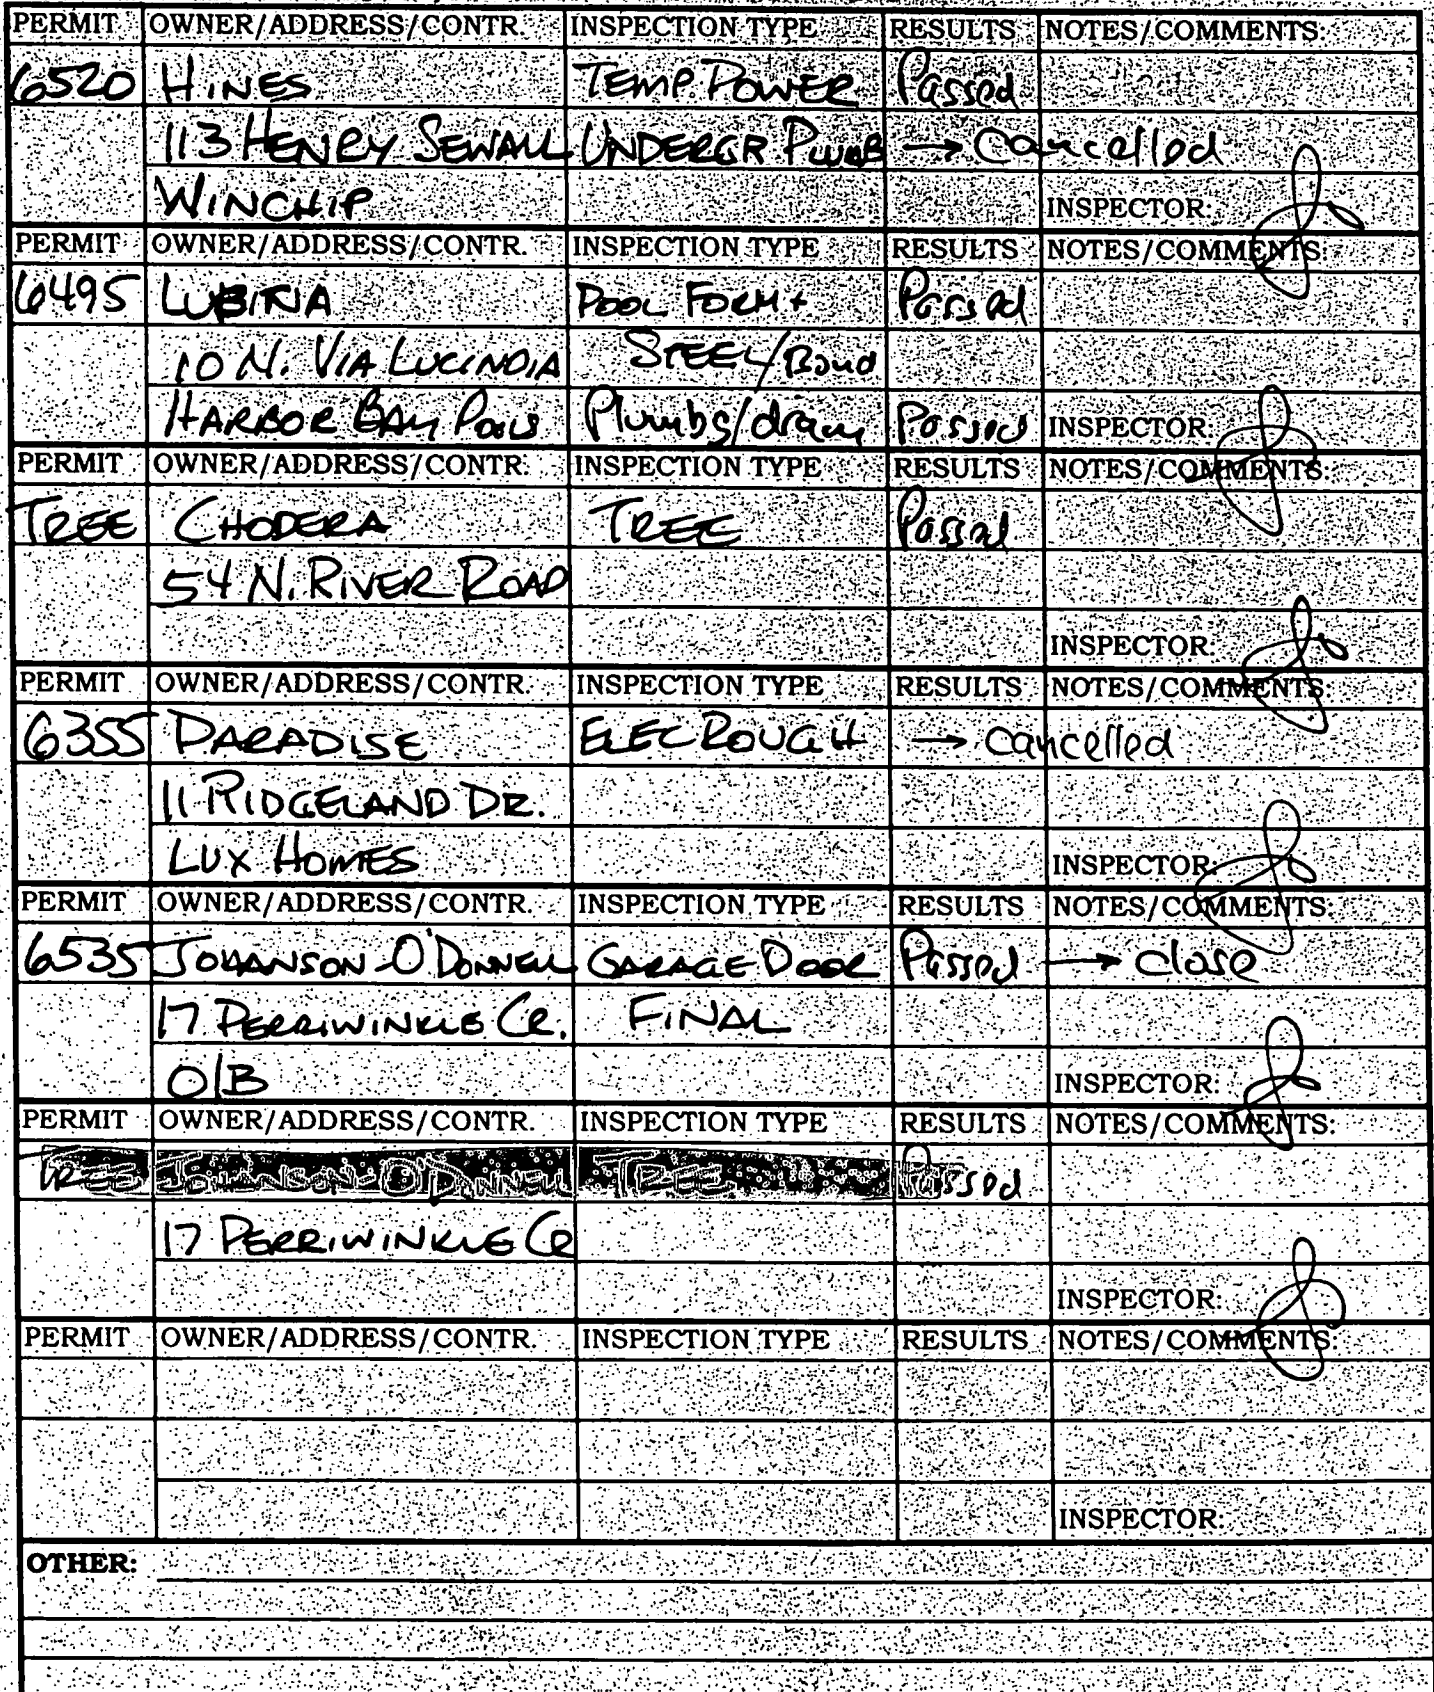 PERMIT OWNER/ADDRESS/CONTR. INSPECTION TYPE RESULTS NOTES/COMMENTS:
6520 HINES TEMP. POWER Passed
113 HENRY SEWALL UNDERGR. PLUMB → Cancelled
WINCHIP INSPECTOR:
PERMIT OWNER/ADDRESS/CONTR. INSPECTION TYPE RESULTS NOTES/COMMENTS:
6495 LUBINA POOL FORM + Passed
10 N. VIA LUCINDIA STEEL/Bond
HARBOR BAY POOLS Plumbg/drain Passed INSPECTOR:
PERMIT OWNER/ADDRESS/CONTR. INSPECTION TYPE RESULTS NOTES/COMMENTS:
TREE CHODERA TREE Passed
54 N. RIVER ROAD
INSPECTOR:
PERMIT OWNER/ADDRESS/CONTR. INSPECTION TYPE RESULTS NOTES/COMMENTS:
6355 PARADISE ELEC ROUGH → Cancelled
11 RIDGELAND DR.
LUX HOMES INSPECTOR:
PERMIT OWNER/ADDRESS/CONTR. INSPECTION TYPE RESULTS NOTES/COMMENTS:
6535 JOHANSON-O'DONNELL GARAGE DOOR Passed → close
17 PERRIWINKLE CR. FINAL
O/B INSPECTOR:
PERMIT OWNER/ADDRESS/CONTR. INSPECTION TYPE RESULTS NOTES/COMMENTS:
TREE JOHANSON-O'DONNELL TREE Passed
17 PERRIWINKLE CR
INSPECTOR:
PERMIT OWNER/ADDRESS/CONTR. INSPECTION TYPE RESULTS NOTES/COMMENTS:
INSPECTOR:
OTHER: